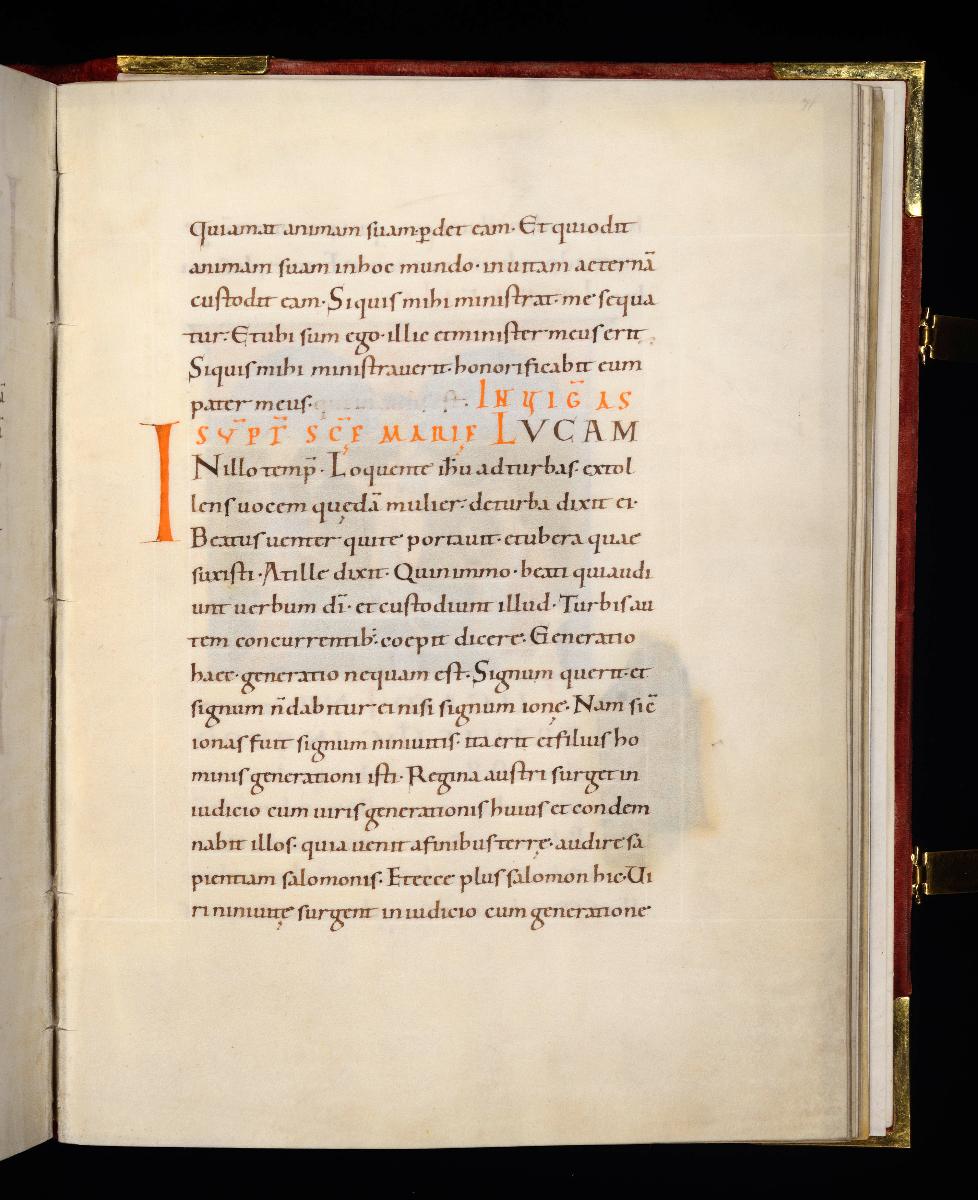 Quiamat animam suam· ꝑdet eam· Et qui odit
animam suam in hoc mundo· in uitam aeternā
custodit eam· Siquis mihi ministrat· me sequa
tur· Et ubi sum ego· illic et minister meus erit
Siquis mihi ministrauerit· honorificabit eum
pater meus· IN UIG̅ AS
SŪPT̅ SC̅E MARIĘ LVCAM
IN illo temp̄· Loquente ih̅u ad turbas· extol
lens uocem quędā mulier· de turba dixit ei·
Beatus uenter qui te portauit· et ubera quae
suxisti· At ille dixit· Quinimmo· beati qui audi
unt uerbum dī· et custodiunt illud· Turbis au
tem concurrentib:· coepit dicere· Generatio
haec· generatio nequam est· Signum querit· et
signum n̄ dabitur ei nisi signum ionę· Nam sic̄
ionas fuit signum niniuitis· ita erit et filius ho
minis generationi isti· Regina austri surget in
iudicio cum uiris generationis huius et condem
nabit illos· quia uenit a finibus terrę· audire sa
pientiam salomonis· Et ecce plus salomon hic· Ui
ri niniuitę surgent in iudicio cum generatione